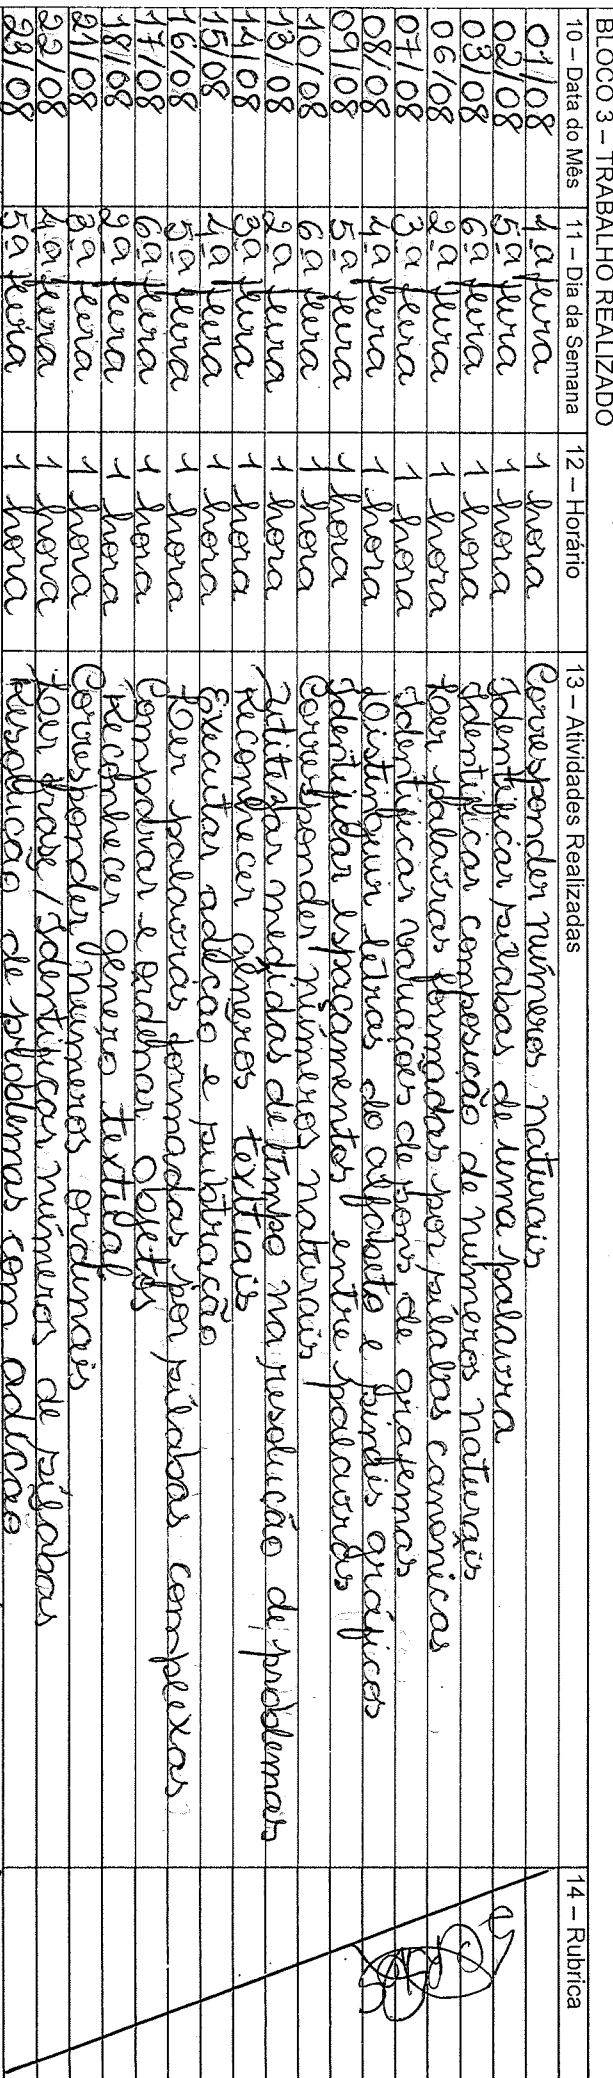 BLOCO 3 – TRABALHO REALIZADO
10 – Data do Mês 11 – Dia da Semana 12 – Horário 13 – Atividades Realizadas 14 – Rubrica
01/08 4ª feira 1 hora Corresponder números naturais
02/08 5ª feira 1 hora Identificar sílabas de uma palavra
03/08 6ª feira 1 hora Identificar composição de números naturais
06/08 2ª feira 1 hora Ler palavras formadas por sílabas canonicas
07/08 3ª feira 1 hora Identificar variações de sons de grafemas
08/08 4ª feira 1 hora Distinguir letras do alfabeto e sinais gráficos
09/08 5ª feira 1 hora Identificar espaçamentos entre palavras
10/08 6ª feira 1 hora Corresponder números naturais
13/08 2ª feira 1 hora Utilizar medidas de tempo na resolução de problemas
14/08 3ª feira 1 hora Reconhecer gêneros textuais
15/08 4ª feira 1 hora Executar adição e subtração
16/08 5ª feira 1 hora Ler palavras formadas por sílabas complexas
17/08 6ª feira 1 hora Comparar e ordenar objetos
18/08 2ª feira 1 hora Reconhecer gênero textual
21/08 3ª feira 1 hora Corresponder números ordinais
22/08 4ª feira 1 hora Ler frase / Identificar números de sílabas
23/08 5ª feira 1 hora Resolução de problemas com adição